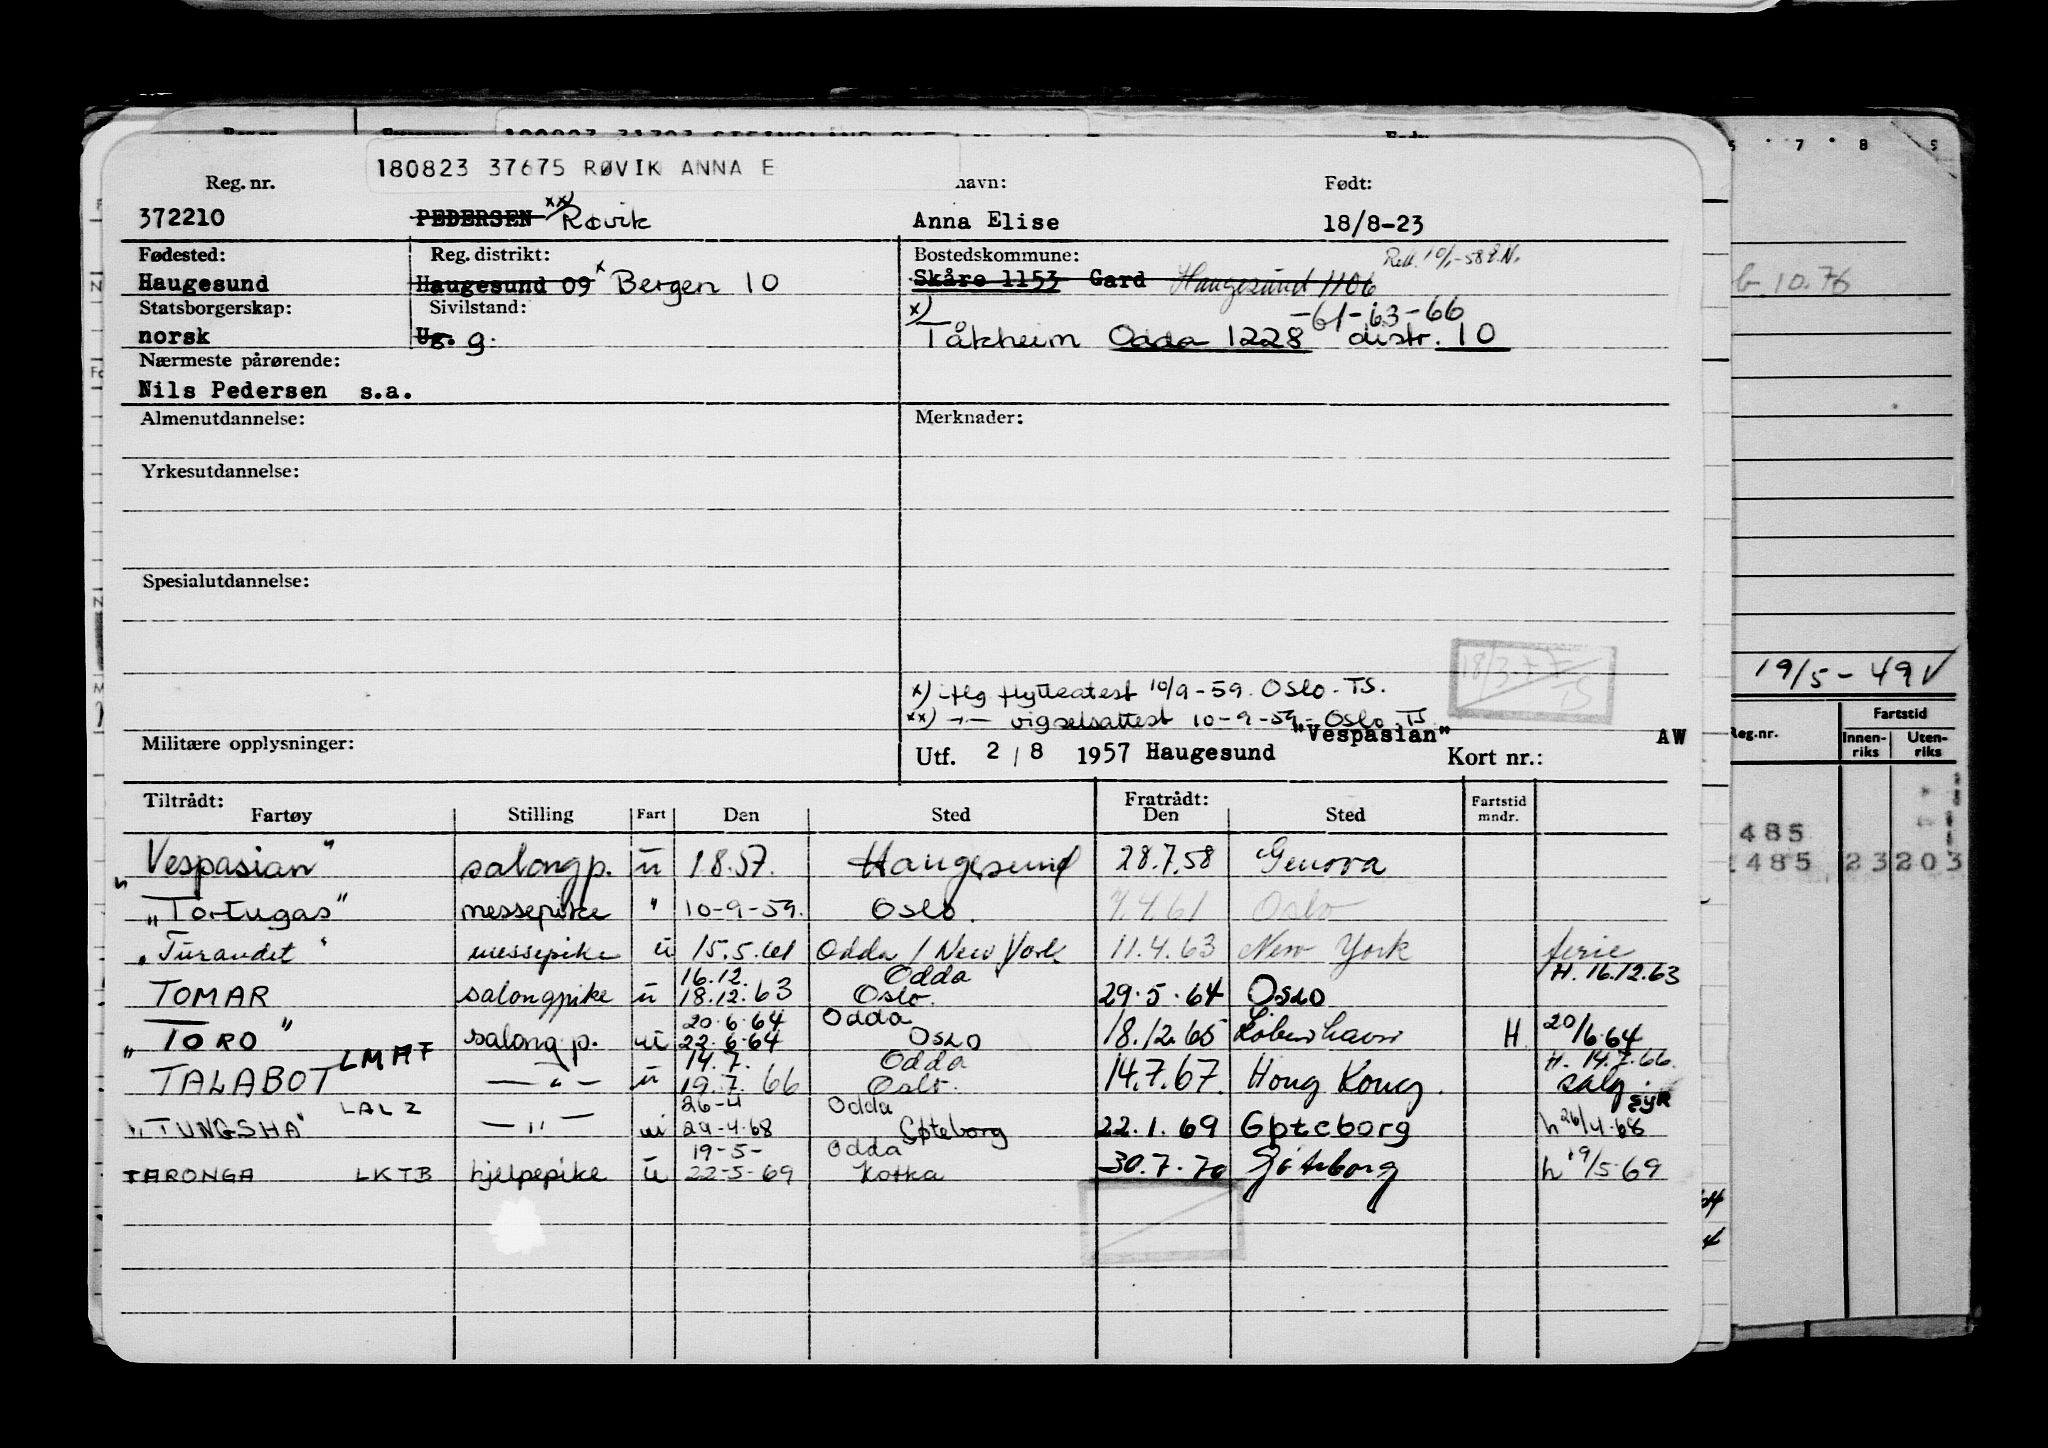 180823 37675 RØVIK ANNA E
Reg. nr. navn: Født:
372210 PEDERSEN xx) Røvik Anna Elise 18/8-23
Fødested: Reg. distrikt: Bostedskommune: Rett. 10/1-58
Haugesund Haugesund 09 x Bergen 10 Skåre 1153 Gard Haugesund 1106
Statsborgerskap: Sivilstand: x) -61-63-66
norsk Ug. g. Tåkheim Odda 1228 distr. 10
Nærmeste pårørende:
Nils Pedersen s.a.
Almenutdannelse: Merknader:
Yrkesutdannelse:
Spesialutdannelse:
18/3-77 TS
x) iflg flytteattest 10/9-59. Oslo. TS.
xx) -"- vigselsattest 10-9-59- Oslo TS
Militære opplysninger: "Vespasian" AW
Utf. 2 / 8 1957 Haugesund Kort nr.:
Tiltrådt: Fratrådt: Fartstid
Fartøy Stilling Fart Den Sted Den Sted mndr.
"Vespasian" salongp. u 1.8.57. Haugesund 28.7.58 Genova
"Tortugas" messepike " 10-9-59. Oslo. 7.4.61 Oslo
"Turandet" messepike u 15.5.61 Odda / New York 11.4.63 New York ferie
16.12. Odda H. 16.12.63
TOMAR salongpike u 18.12.63 Oslo. 29.5.64 OSLO
20.6.64 Odda
"TORO" salongp. u 22.6.64 OSLO 18.12.65 København H 20/6.64
LMHF 14.7. Odda H. 14.7.66.
TALABOT -"- u 19.7.66 Oslo. 14.7.67. Hong Kong. salg
LALZ 26-4 Odda syk
"TUNGSHA" -"- u 29-4-68 Gøteborg 22.1.69 Gøteborg h 26/4-68
19-5- Odda
TARONGA LKTB hjelpepike u 22-5-69 Kotka 30.7.70 Göteborg h 19/5-69
7 8
10.76
19/5-49
Reg.nr. Fartstid
Innen-riks Uten-riks
485
485 23 203